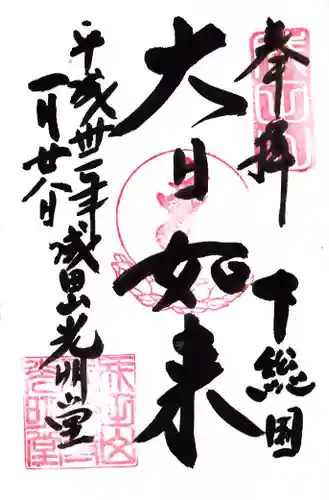 奉拝
下総国
大日如来
平成卅一年成田山光明堂
一月廿八日